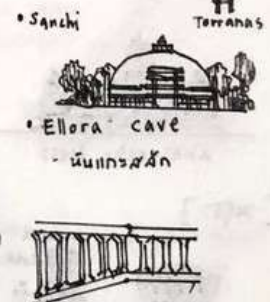 • Sanchi Torranas
• Ellora cave
- หินแกะสลัก